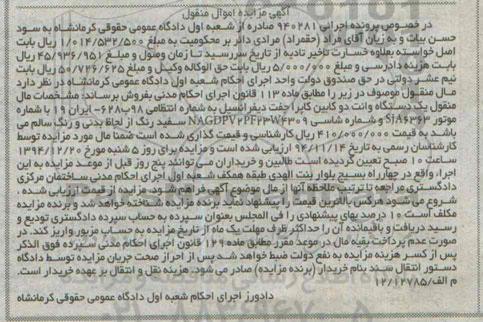 آگهی مزایده اموال منقول
در خصوص پرونده اجرائی ۹۴۰۲۸۱ صادره از شعبه اول دادگاه عمومی حقوقی کرمانشاه به سود
حسن بیات و به زیان آقای مراد (خضرمراد) مرادی دائر بر محکومیت به مبلغ ۱/۰۱۴/۵۳۲/۵۰۰ ریال بابت
اصل خواسته بعلاوه خسارت تاخیر تادیه از تاریخ سررسید تا زمان وصول و مبلغ ۴۵/۹۳۶/۹۵۱ ریال
بابت هزینه دادرسی و مبلغ ۵/۰۰۰/۰۰۰ ریال بابت حق الوکاله وکیل و مبلغ ۵۰/۷۲۶/۶۲۵ ریال بابت
نیم عشر دولتی در حق صندوق دولت واحد اجرای احکام شعبه اول دادگاه عمومی کرمانشاه در نظر دارد
مال منقول موصوف در زیر را مطابق ماده ۱۱۳ قانون اجرای احکام مدنی بفروش برساند: مشخصات مال
منقول یک دستگاه وانت دو کابین کاپرا جفت دیفرانسیل به شماره انتظامی ۶۲۸ ۹۸ ایران ۱۹ با شماره
موتور و شماره شاسی سفید رنگ از لحاظ بدنی و رنگ سالم می
باشد به قیمت ۴۱۰/۰۰۰/۰۰۰ ریال کارشناسی و قیمت گذاری شده است ضمنا مال مورد مزایده توسط
کارشناسان رسمی به تاریخ ۹۴/۱۱/۱۴ ارزیابی شده است و مزایده برای روز ۵ شنبه مورخ ۱۳۹۴/۱۲/۲۰
ساعت ۱۰ صبح تعیین گردیده است طالبین و خریداران می توانند پنج روز قبل از موعد مزایده به این
اجرا، واقع در چهارراه بسیج بلوار بنت الهدی طبقه همکف شعبه اول اجرای احکام مدنی ساختمان مرکزی
دادگستری مراجعه تا ترتیب ملاحظه آنها از مال موضوع آگهی فراهم شود. مزایده از قیمت ارزیابی شده،
شروع می شود هرکس بالاترین قیمت را پیشنهاد نماید برنده مزایده شناخته خواهد شد و برنده مزایده
مکلف است ۱۰ درصد بهای پیشنهادی را فی المجلس بعنوان سپرده به حساب سپرده دادگستری تودیع و
رسید دریافت و باقیمانده آن را حداکثر ظرف مهلت یک ماه از تاریخ مزایده به حساب مزبور واریز کند. در
صورت عدم پرداخت بقیه مال در موعد مقرر مطابق ماده ۱۲۹ قانون اجرای احکام مدنی سپرده فوق الذکر
پس از کسر هزینه مزایده به نفع دولت ضبط خواهد شد پس از احراز صحت جریان مزایده توسط دادگاه
دستور انتقال سند بنام خریدار (برنده مزایده) صادر می شود. هزینه نقل و انتقال بر عهده خریدار است.
م الف/۱۲/۱۲۷۸۵
دادورز اجرای احکام شعبه اول دادگاه عمومی حقوقی کرمانشاه